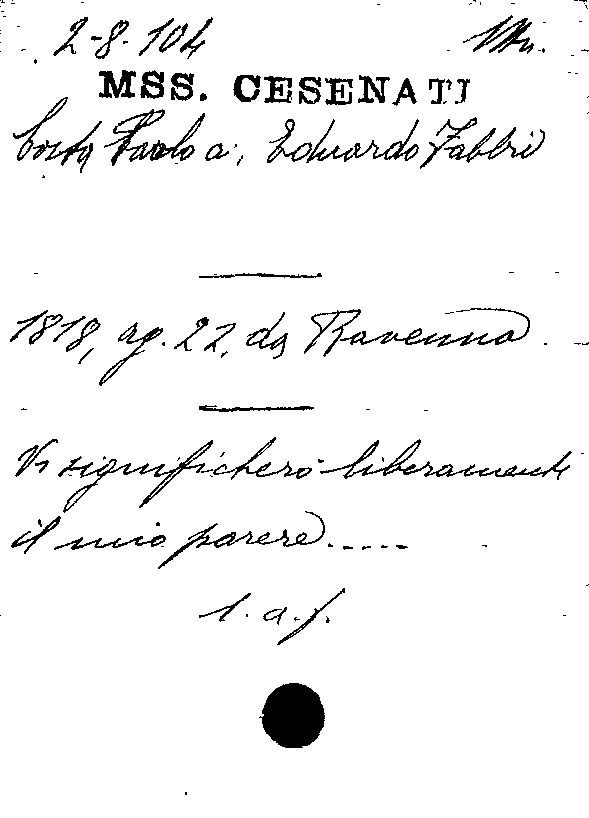 2-8. 104
MSS. CESENATI
Costa Paolo a, Eduardo Fabbri
1818, ag. 22, da Ravenna
Vi significherò liberamente
il mio parere.....
l. a. f.